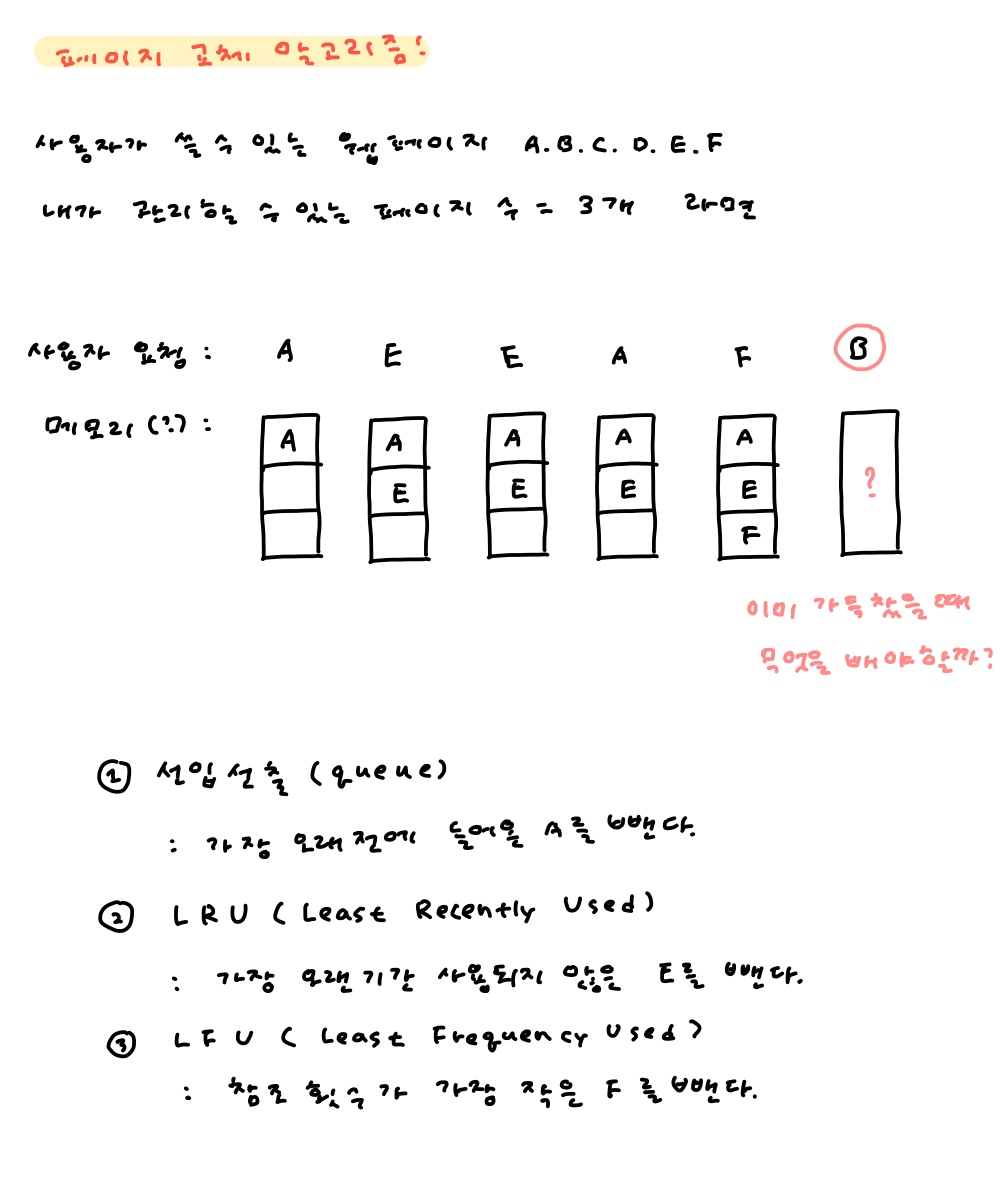 페이지 교체 알고리즘!
사용자가 쓸 수 있는 웹페이지 A.B.C.D.E.F
내가 관리할 수 있는 페이지 수 = 3개 라면
사용자 요청 : A E E A F B
메모리(?) : A A A A A ?
E E E E
F
이미 가득찼을때
무엇을 빼야할까?
① 선입선출 (queue)
: 가장 오래전에 들어온 A를 뺀다.
② LRU (Least Recently Used)
: 가장 오랜기간 사용되지 않은 E를 뺀다.
③ LFU (Least Frequency Used)
: 참조 횟수가 가장 작은 F를 뺀다.